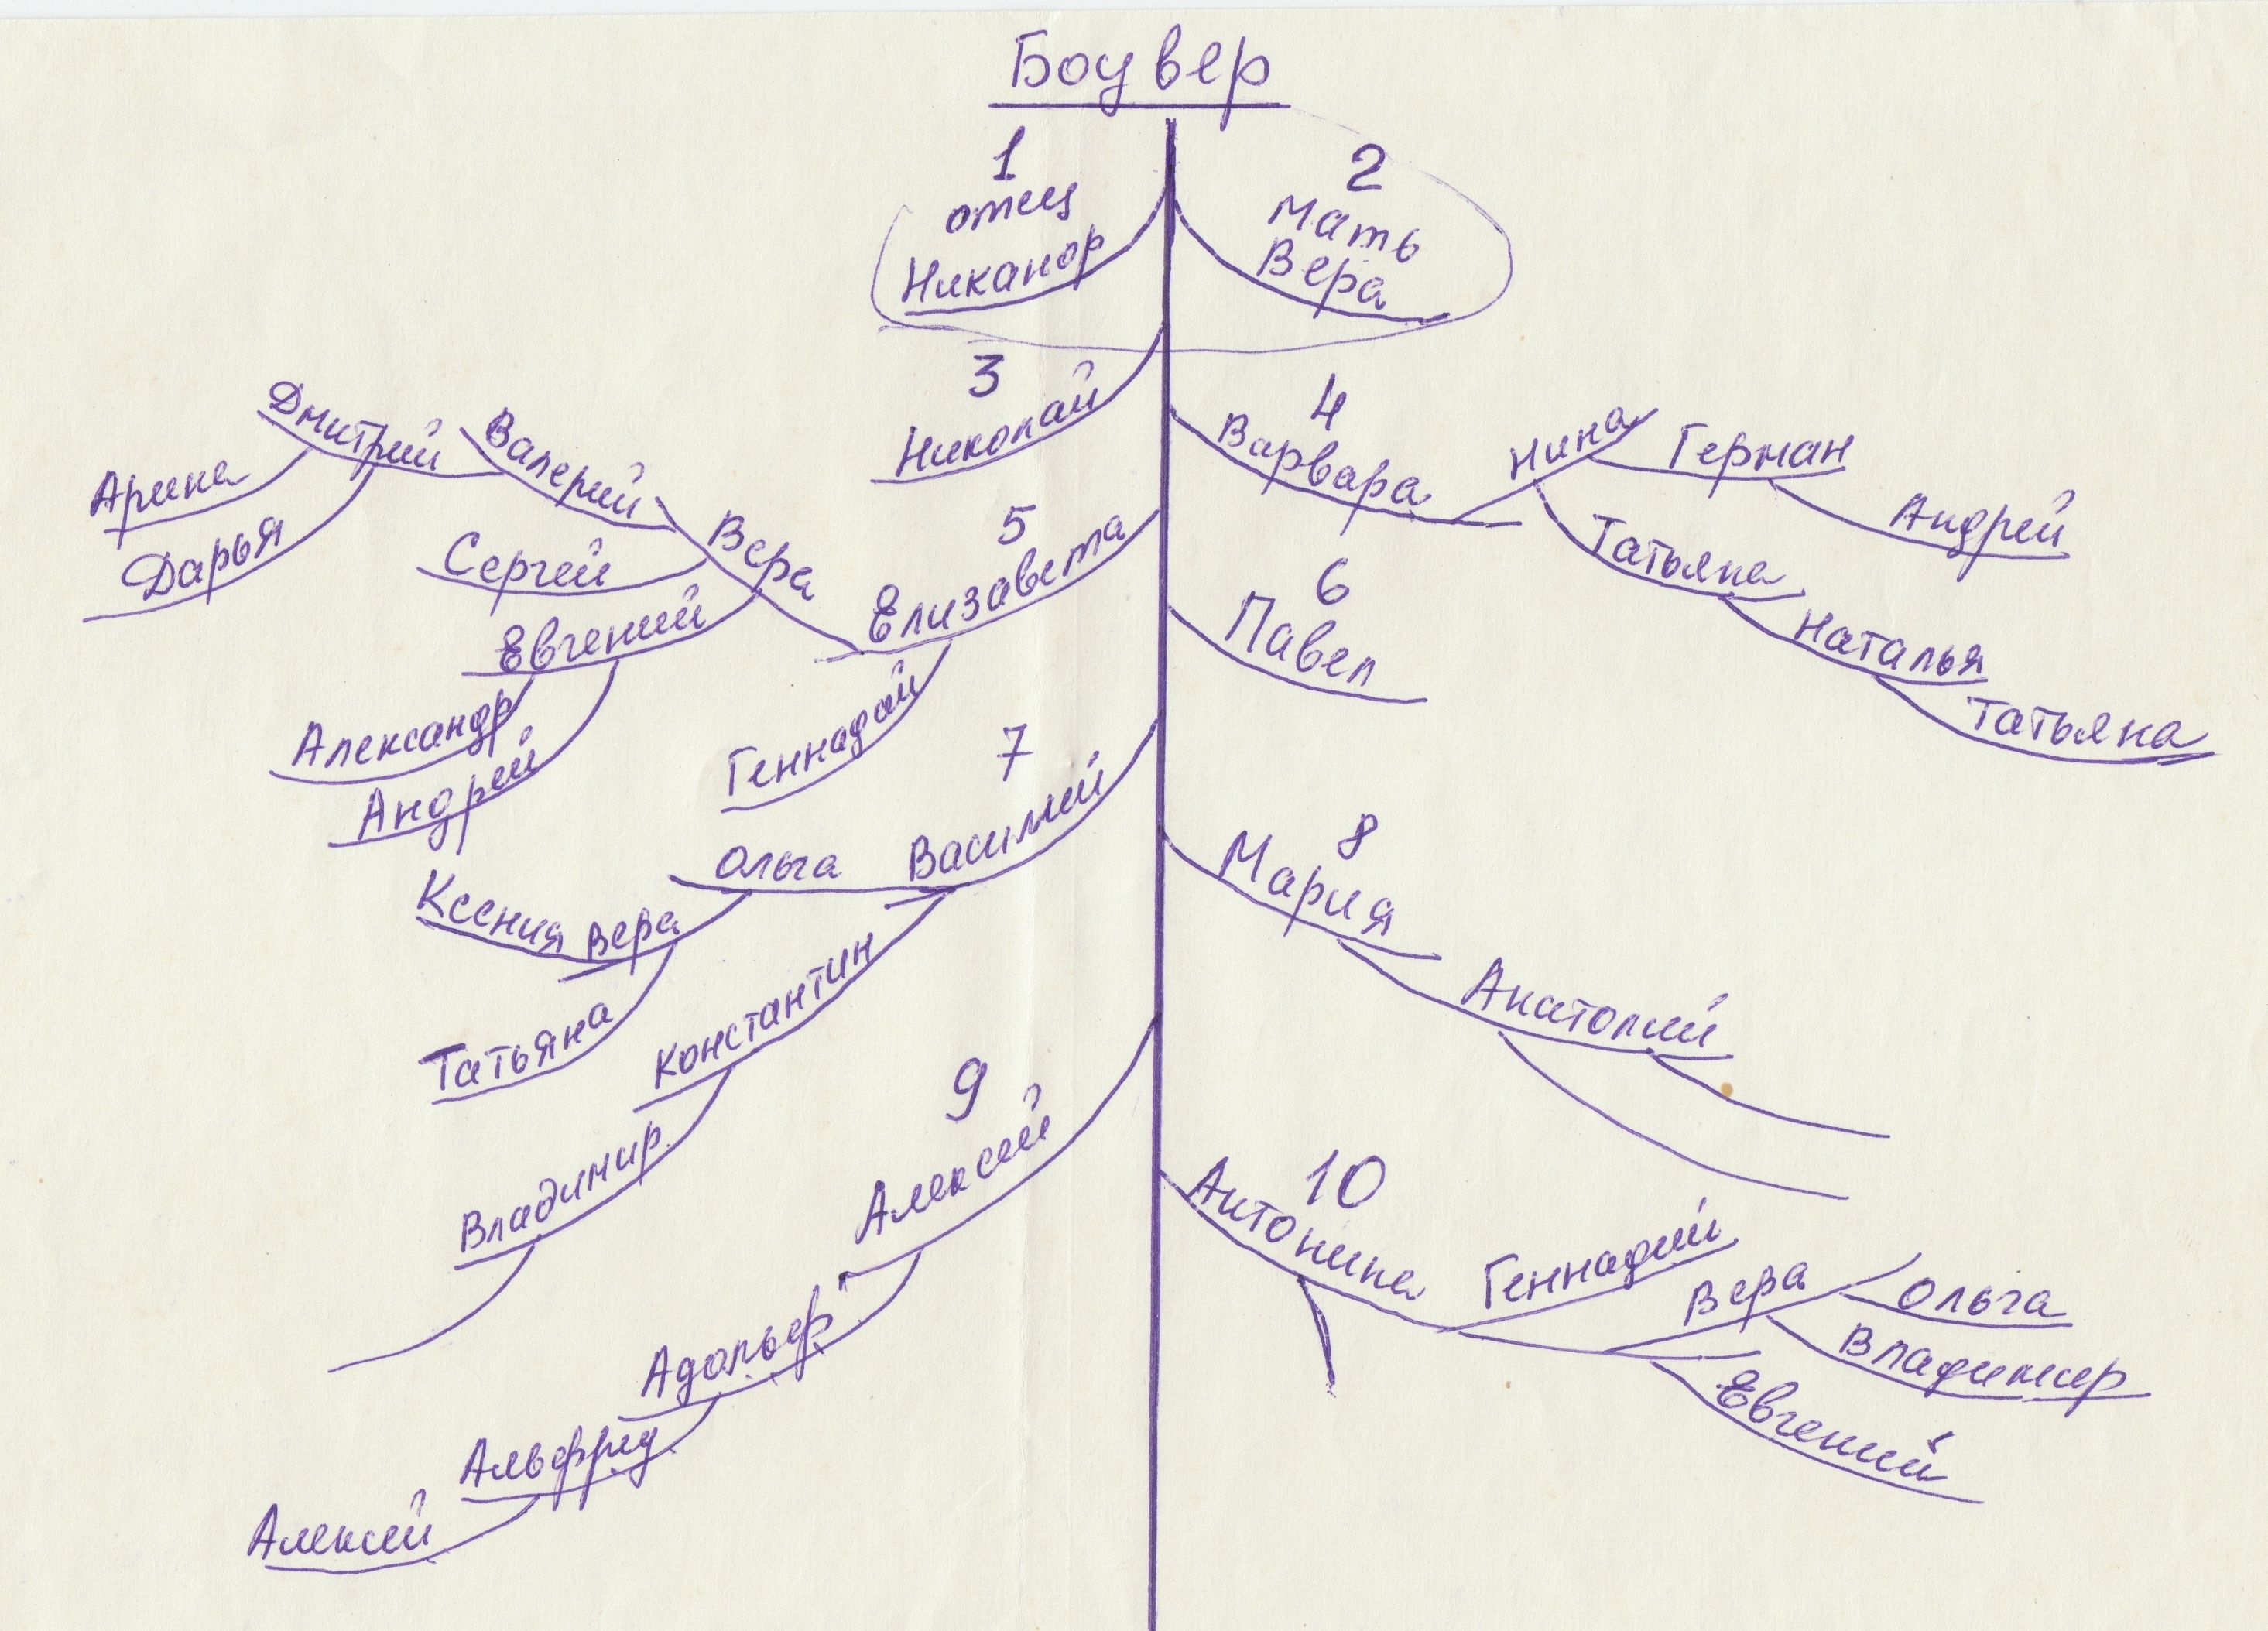 Боувер
1
отец
Никанор
2
Мать
Вера
3
Николай
4
Варвара
Нина
Герман
Андрей
Татьяна
Наталья
Татьяна
5
Елизавета
Вера
Валерий
Дмитрий
Арина
Дарья
Сергей
Евгений
Александр
Андрей
Геннадий
6
Павел
7
Василий
Ольга
Вера
Ксения
Татьяна
Константин
Владимир
8
Мария
Анатолий
9
Алексей
Адольф
Альфред
Алексей
10
Антонина
Геннадий
Вера
Ольга
Владимир
Евгений